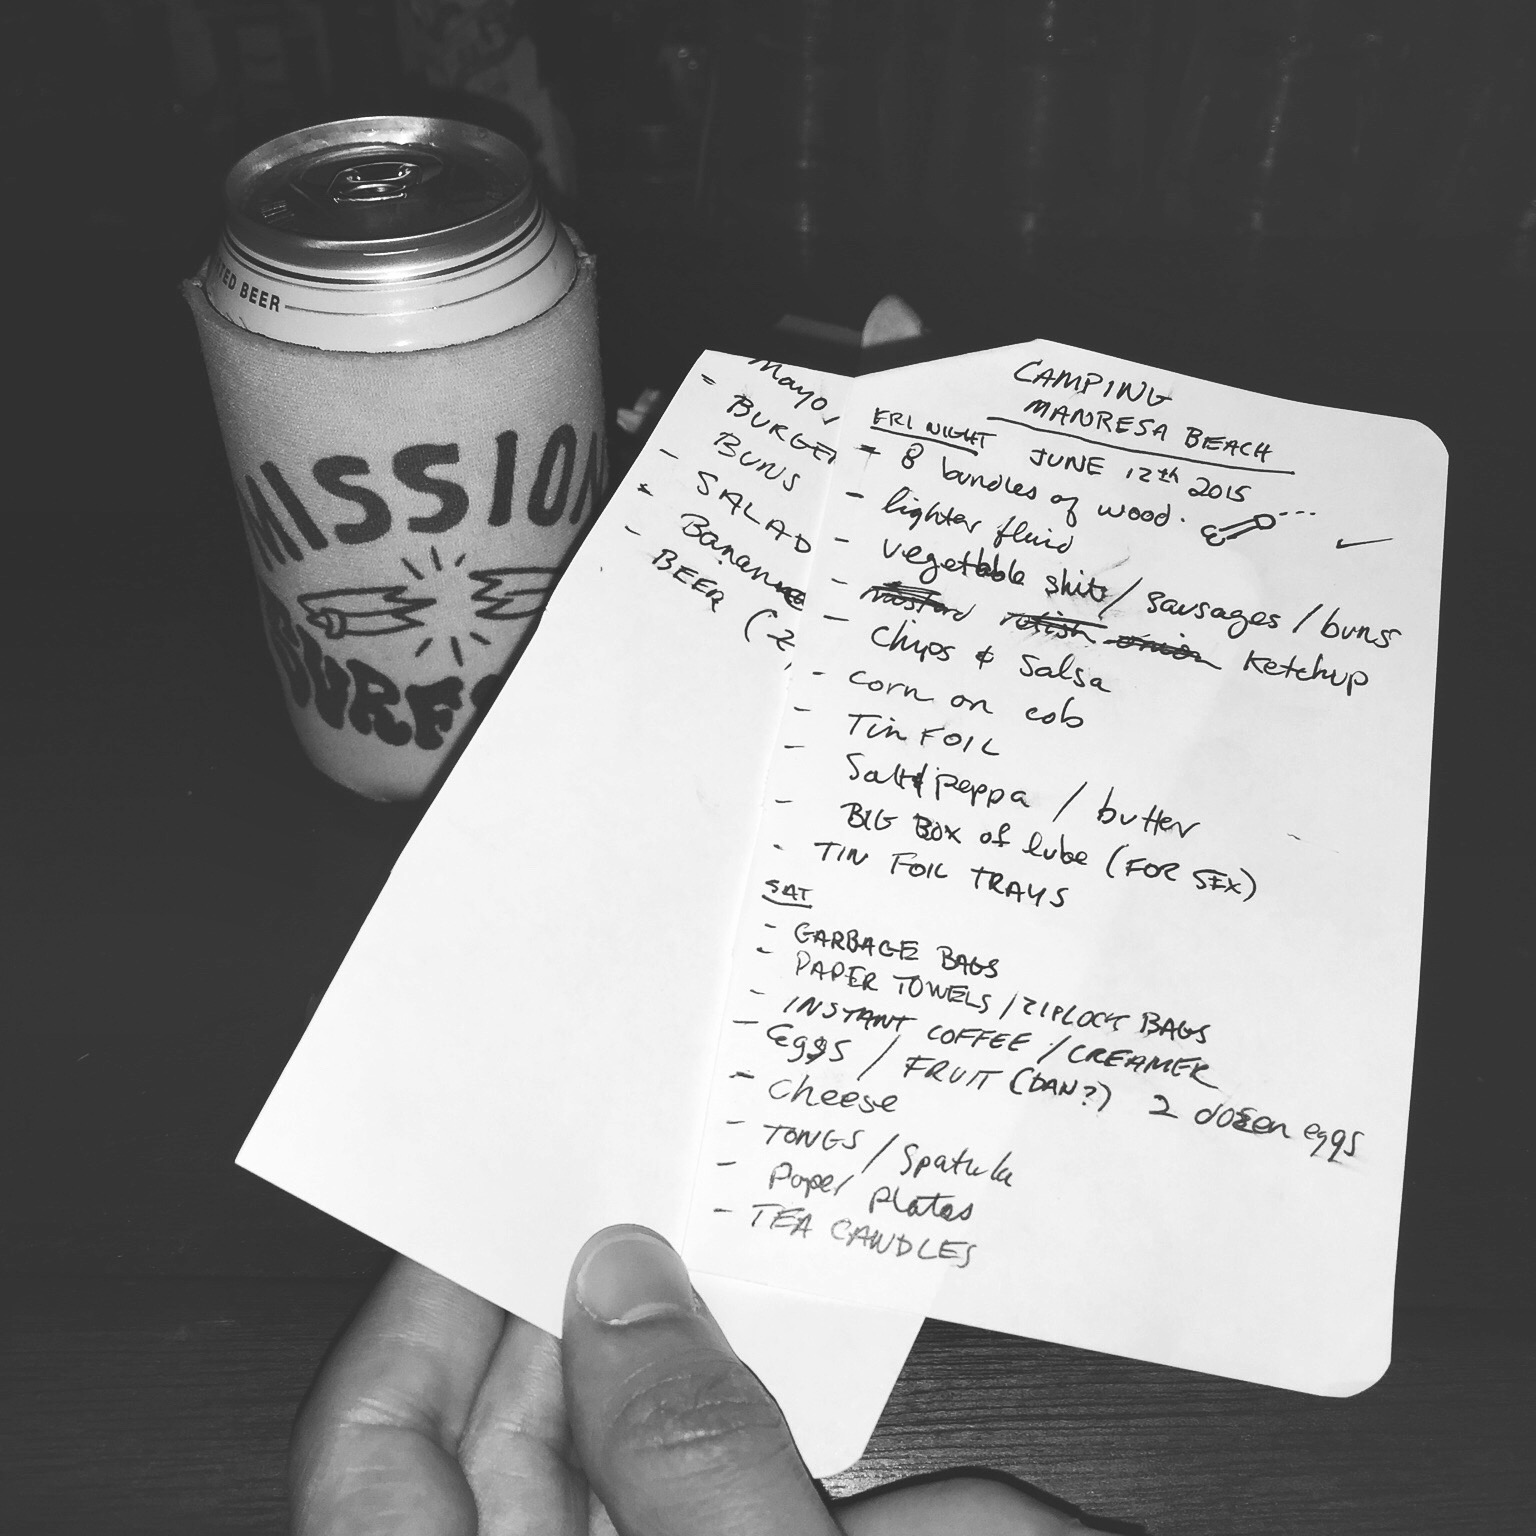 TED BEER
MISSION
SURF
Mayo,
- BURGE
BUNS
- SALAD
- Banan
- BEER (2
CAMPING
MANRESA BEACH
FRI NIGHT JUNE 12th 2015
- 8 bundles of wood.
- lighter fluid
- vegetable shit / sausages / buns
- mustard relish onion Ketchup
- chips & salsa
- corn on cob
- Tin FOIL
- Salt & peppa / butter
- BIG BOX of lube (FOR SEX)
- TIN FOIL TRAYS
SAT
- GARBAGE BAGS
- PAPER TOWELS / ZIPLOCK BAGS
- INSTANT COFFEE / CREAMER
- Eggs / FRUIT (DAN?) 2 dozen eggs
- Cheese
- TONGS / Spatula
- Paper plates
- TEA CANDLES